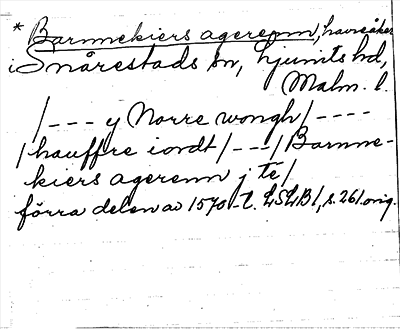 * Barnnekiers agerenn, havreåker
i Snårestads sn, Ljunits hd,
Malm. l.
/ - - - y Norre wongh / - - - -
/ hauffre iordt / - - - / Barnne-
kiers agerenn j tē /
förra delen av 1570-t. LSLB 1, s. 261. orig.